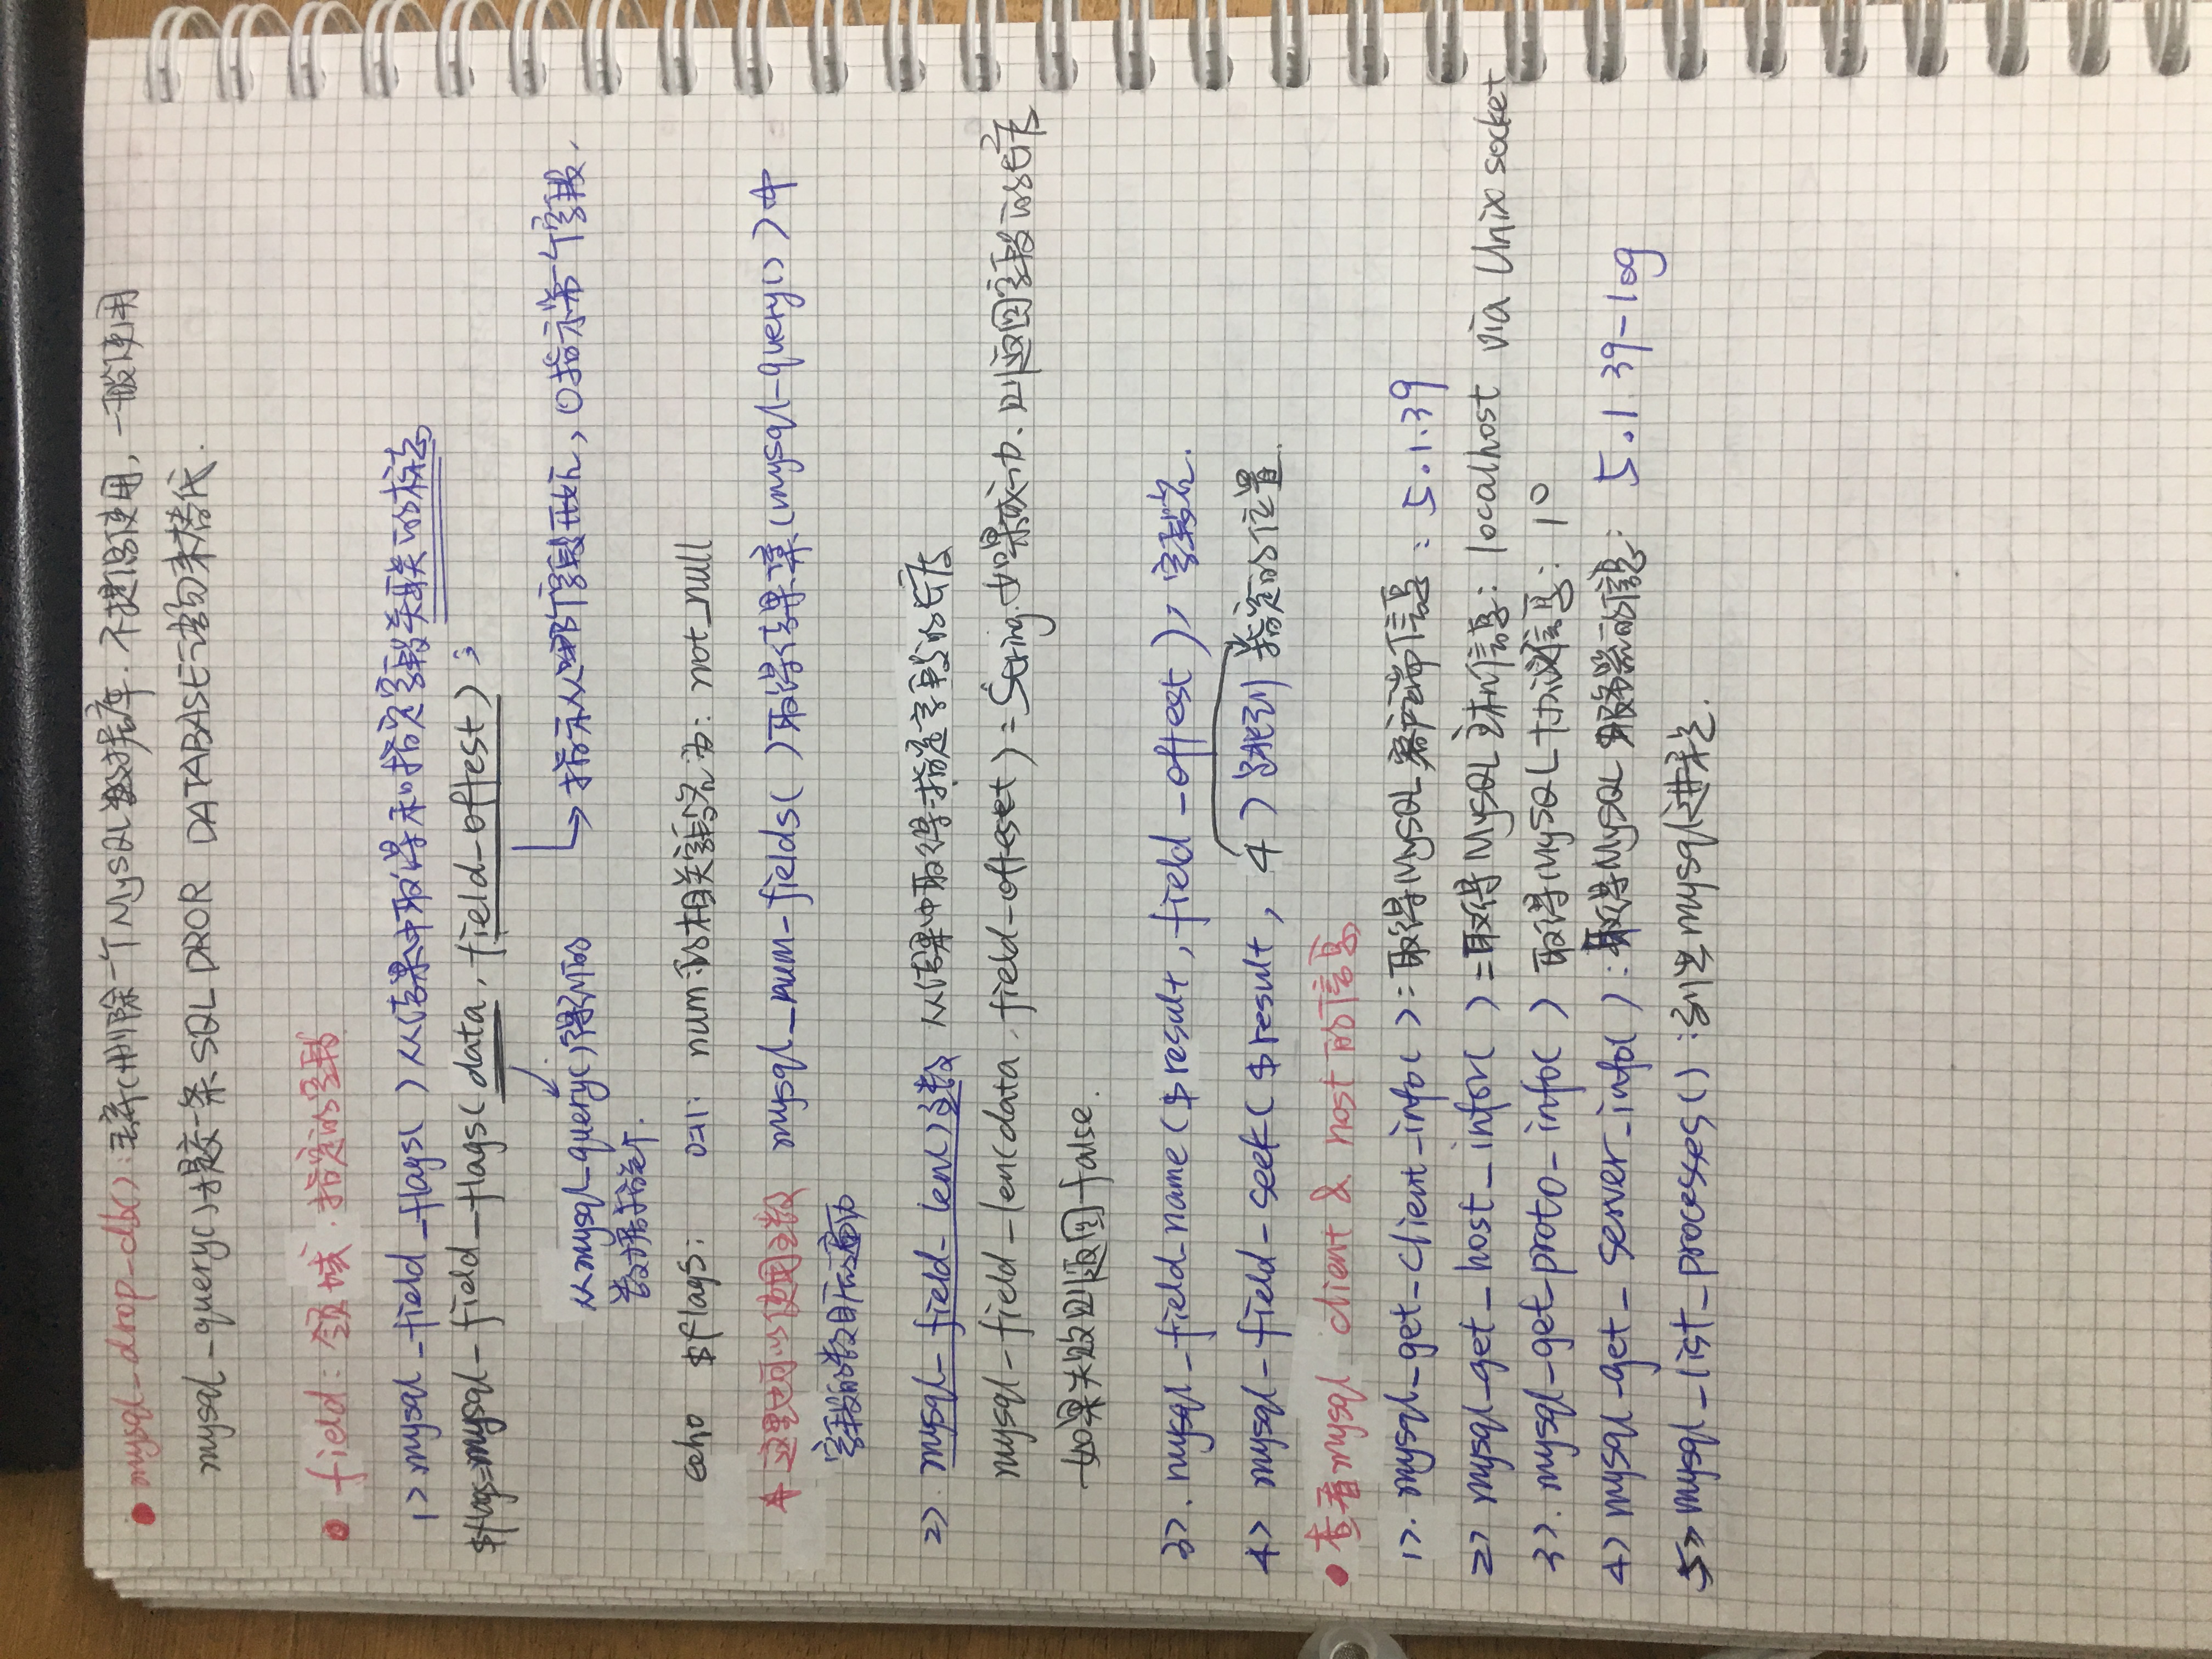 mysql_drop_db(): 丢弃(删除一个MySQL数据库. 不提倡使用, 一般使用
mysql_query()提交一条SQL DROR DATABASE语句来替代.
field: 领域. 指定的字段
1> mysql_field_flags( ) 从结果中取得和指定字段关联的标志
$flags=mysql_field_flags( data, field_oftest) ;
从mysql_query()得到的 指示从哪个字段开始, 0指示第一个字段.
数据指定个.
echo $flags; num的相关字段名为: not_null
这里也可以使用主数 mysql_num_fields( ) 取得结果集(mysql_query())中
字段的数目后遍历
2> mysql_field_len()主数 从结果中取得指定字段的长度
mysql_field_len(data, field_offeset) = String. 如果成功. 则返回字段的长度
如果失败则返回false.
3>. mysql_field_name ($result, field_oftest ), 字段名.
4> mysql_field_seek( $result, 4 ) 跳到 指定的位置.
查看mysql client & host 的信息
1>. mysql_get_client_info( ) = 取得MySQL客户端信息: 5.1.39
2> mysql_get_host_infor( ) = 取得MySQL主机信息: localhost via Unix socket
3>. mysql_get_proto_info( ) 取得MySQL协议信息: 10
4> mysql_get_server_info( ): 取得MySQL服务器的信息: 5.1.39-log
5> mysql_list_processes() : 列出mysql进程.